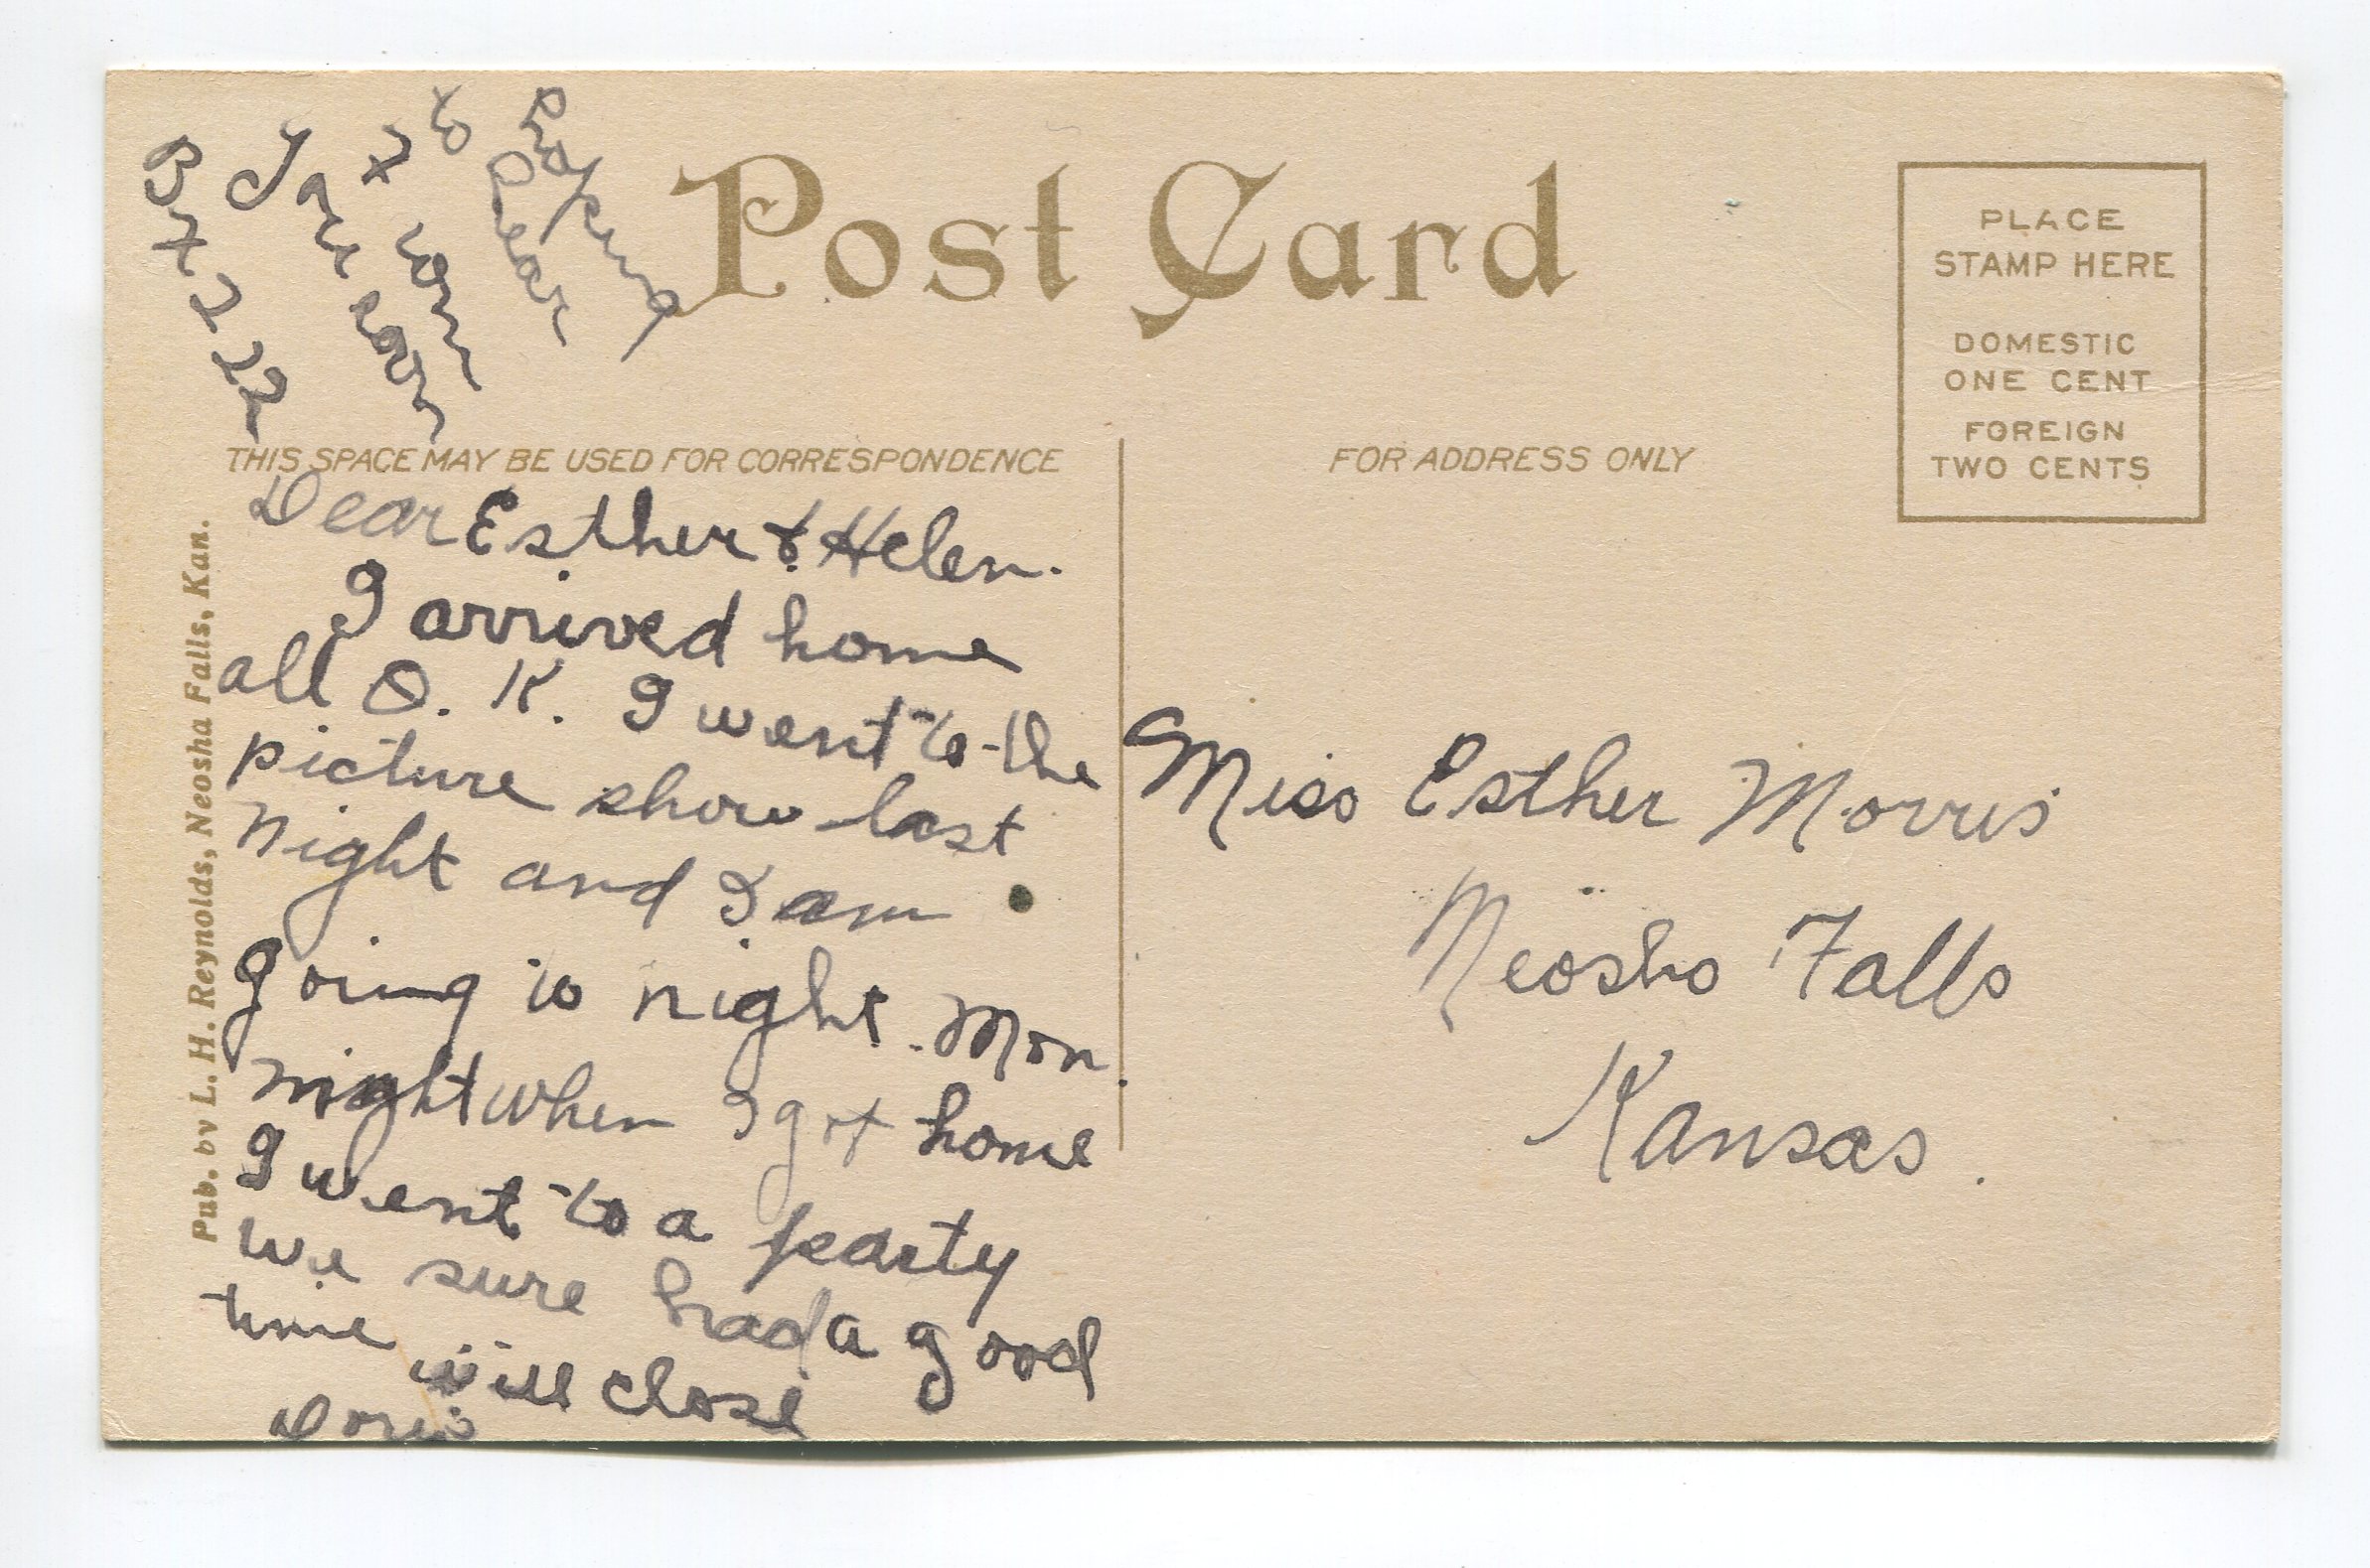 Post Card
PLACE
STAMP HERE
DOMESTIC
ONE CENT
FOREIGN
TWO CENTS
THIS SPACE MAY BE USED FOR CORRESPONDENCE
FOR ADDRESS ONLY
Pub. by L. H. Reynolds, Neosha Falls, Kan.
Dear Esther & Helen.
I arrived home
all O. K. I went to the
picture show last
night and I am
going to night. Mon.
night when I got home
I went to a party
we sure had a good
time
will close
Doris
to
Box 222
Miss Esther Morris
Neosho Falls
Kansas.